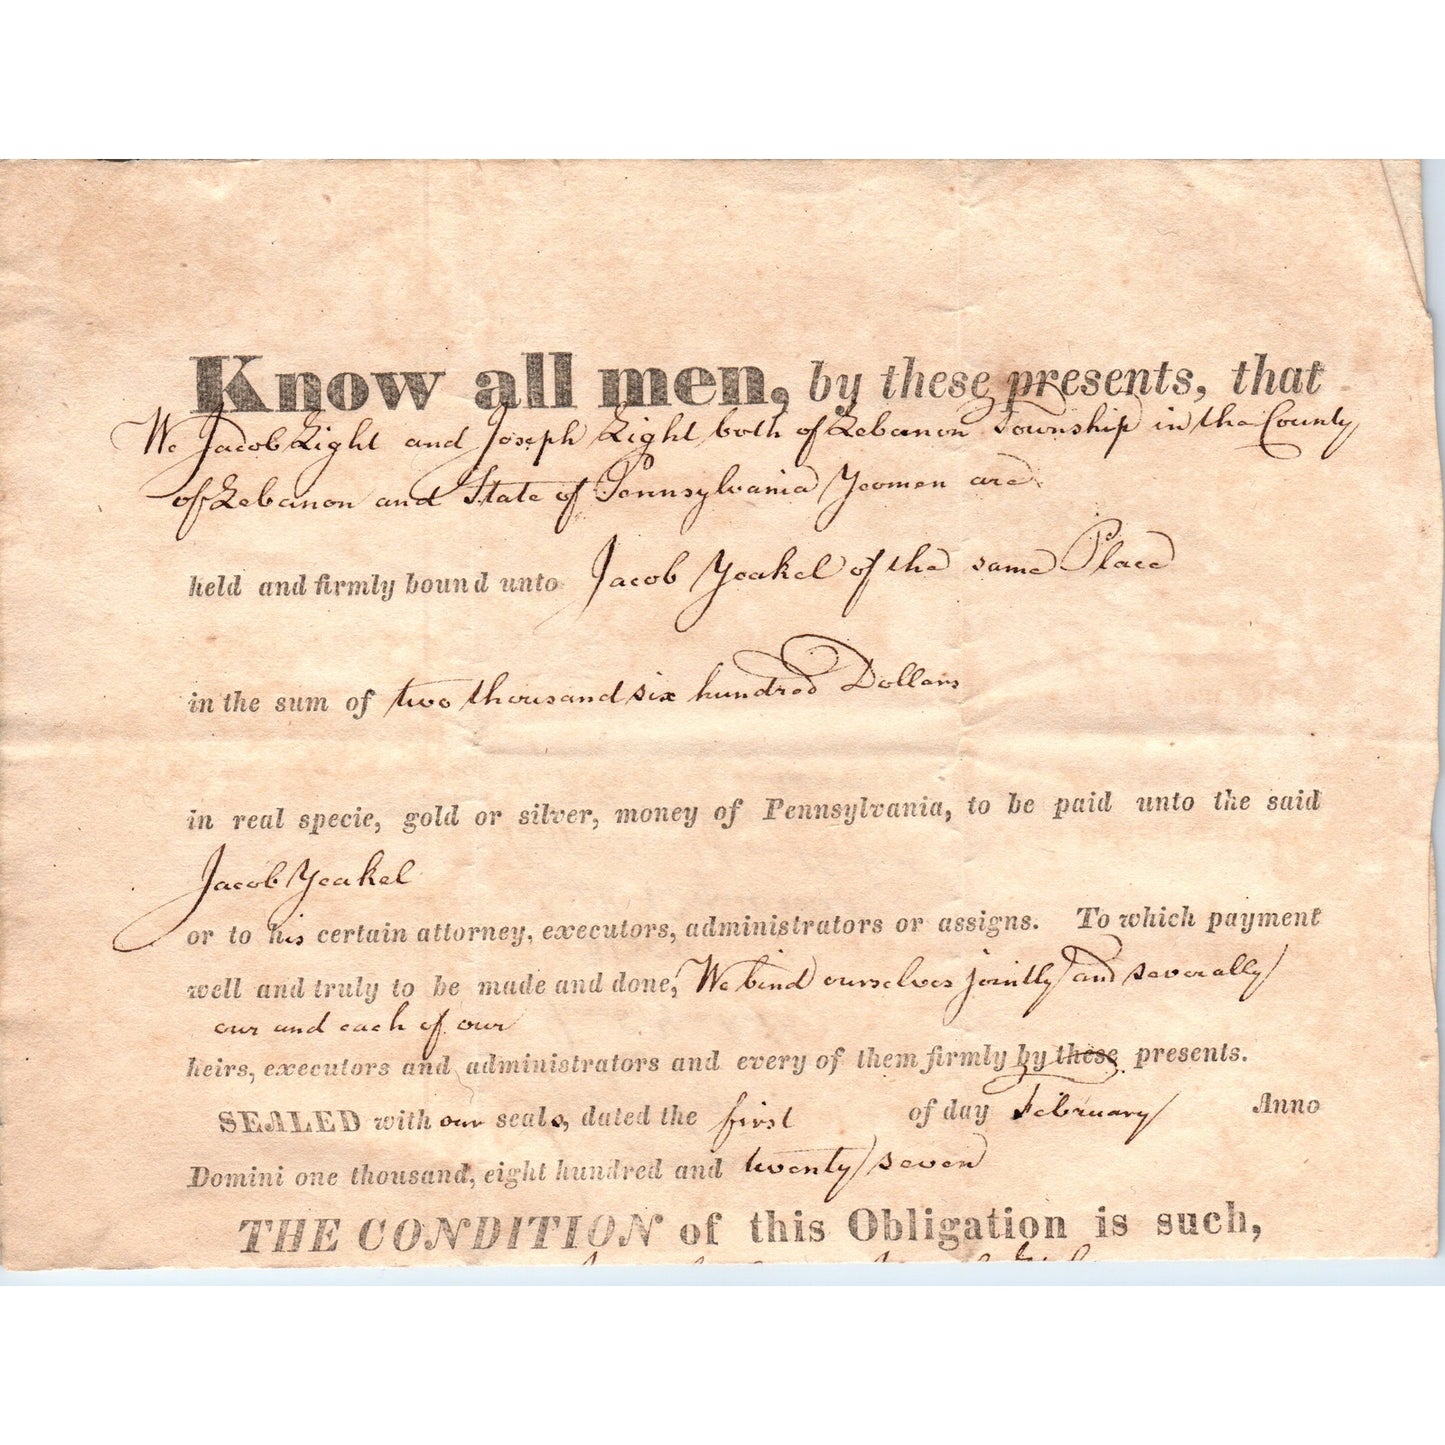 Know all men, by these presents, that
We Jacob Light and Joseph Light both of Lebanon Township in the County
of Lebanon and State of Pennsylvania Yeomen are
held and firmly bound unto Jacob Yeakel of the same Place
in the sum of two thousand six hundred Dollars
in real specie, gold or silver, money of Pennsylvania, to be paid unto the said
Jacob Yeakel
or to his certain attorney, executors, administrators or assigns. To which payment
well and truly to be made and done, We bind ourselves jointly and severally
our and each of our
heirs, executors and administrators and every of them firmly by these presents.
SEALED with our seals, dated the first of day February Anno
Domini one thousand, eight hundred and twenty seven
THE CONDITION of this Obligation is such,